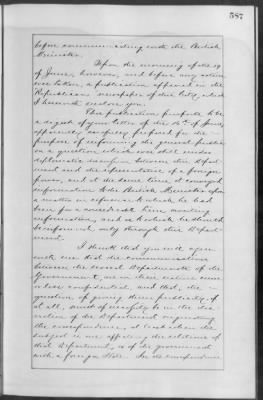 587
before communicating with the British
Minister.
Upon the morning of the 19
of June, however, and before any action
was taken, a publication appeared in the
Republican newspaper of this City, which
I herewith enclose you.
This publication purports to be
a digest of your letter of the 16th of June,
apparently carefully prepared for the
purpose of informing the general public
on a question which was still under
diplomatic discussion between this Depart-
ment and the representative of a foreign
power, and at the same time, it conveyed
information to the British Minister upon
a matter in reference to which he had
been for a considerable time awaiting
information, and as to which he should
be informed only through this Depart-
ment.
I think that you will agree
with me that the communications
between the several Departments of the
Government, are in their nature more
or less confidential, and that, the
question of giving them publicity, if
at all, must of necessity be in the dis-
cretion of the Department originating
the correspondence, at least when the
subject is one affecting the relations of
that Department, or of the government
with a foreign State. In the correspondence